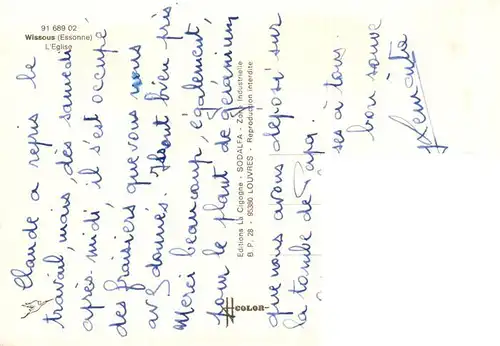 91 689 02
Wissous (Essonne)
L'Eglise
Claude a repris le
travail, mais, dès samedi
après-midi, il s'est occupé
des fraisiers que vous nous
avez donnés. Ils ont bien pris.
Merci beaucoup, également,
pour le plant de géranium
que nous avons déposé sur
la tombe de Papa.
ses à tous.
bon souve
Editions La Cigogne - SODALFA - Zone Industrielle
B.P. 28 - 95380 LOUVRES - Reproduction interdite
COLOR